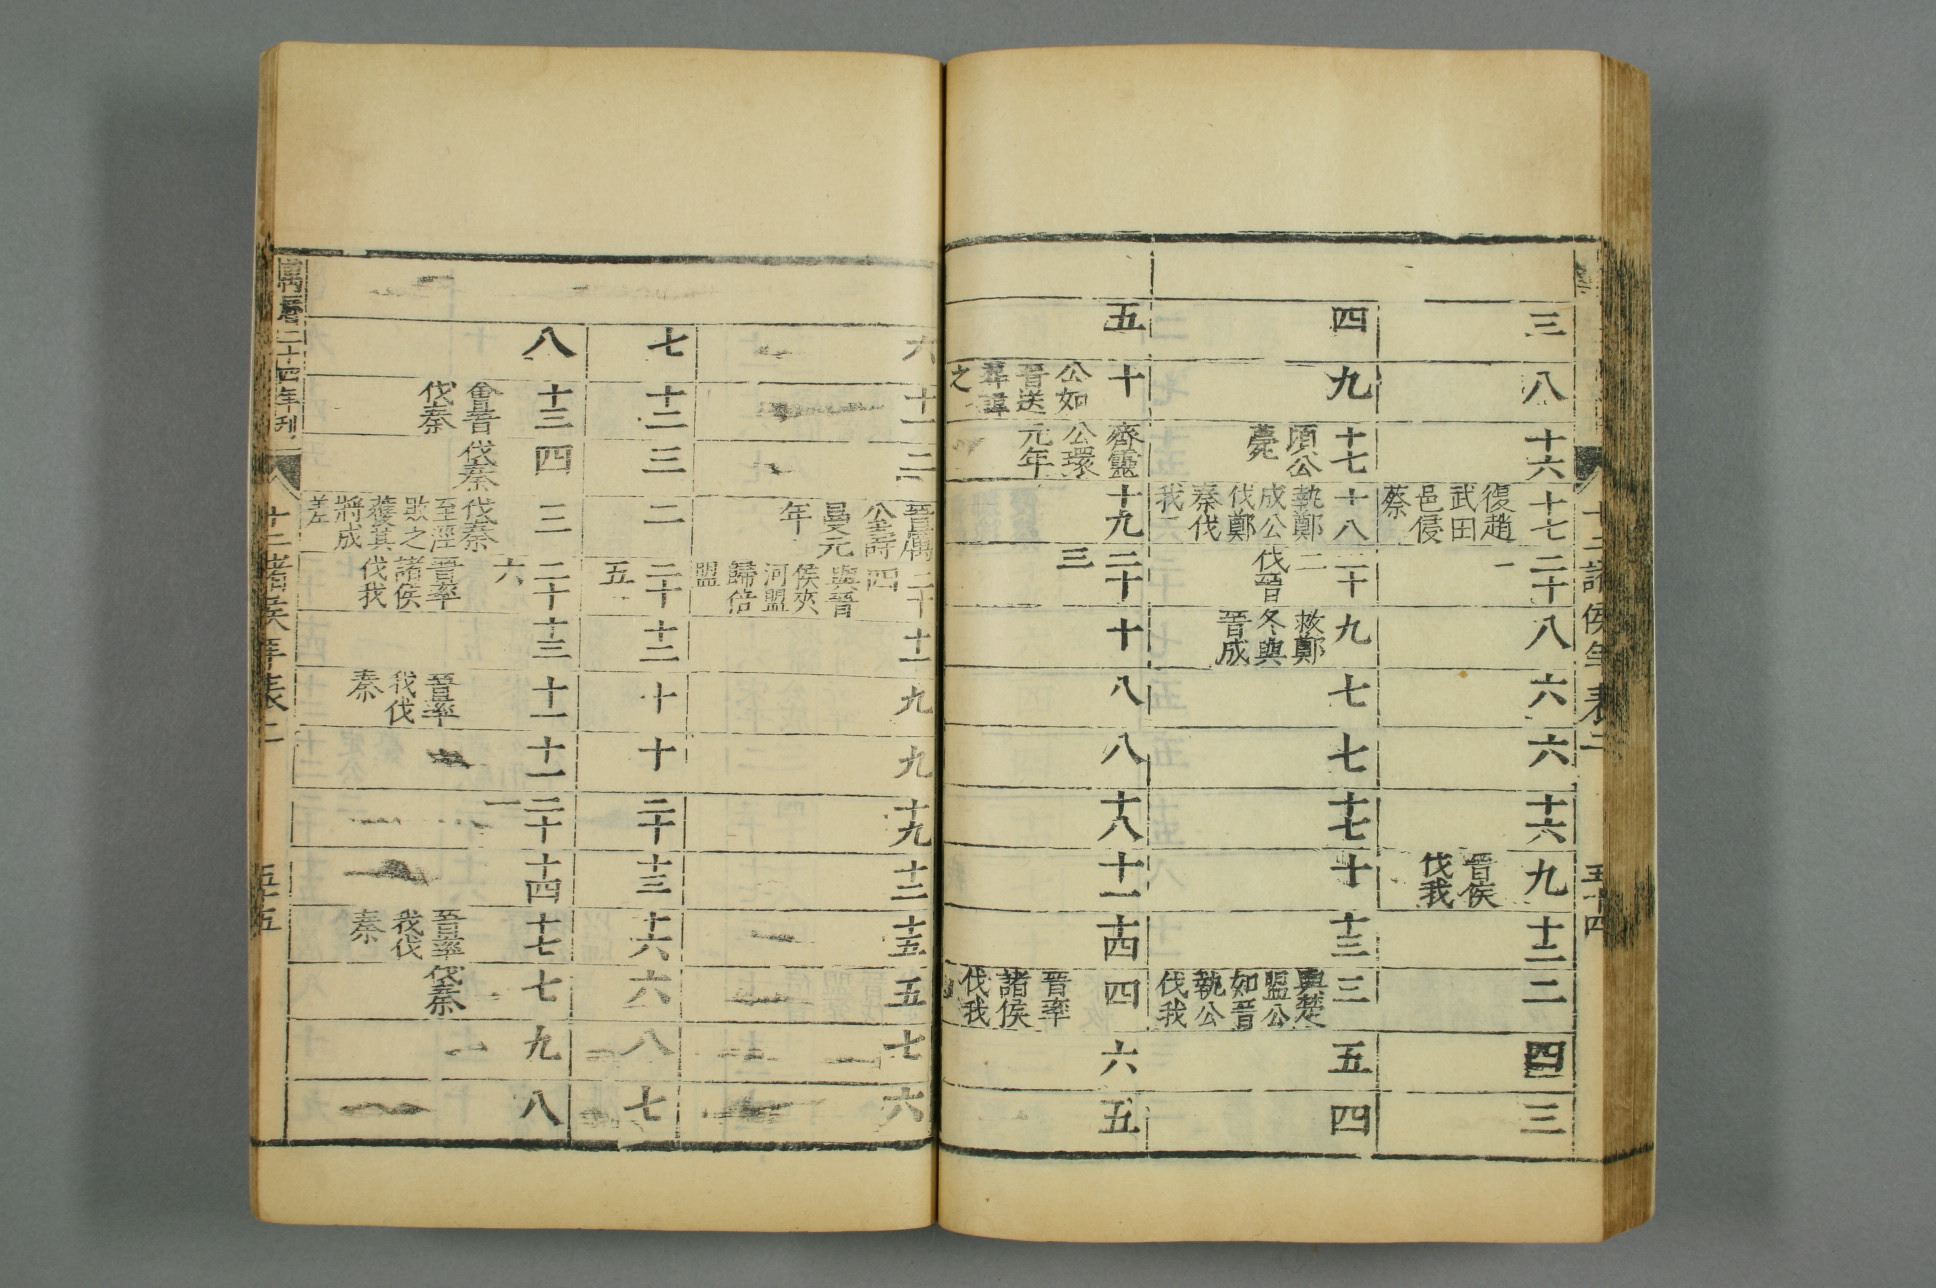 十二諸侯年表二
五十四
三
八
十六
十七
復趙
武田
邑侵
蔡
二十一
八
六
六
十六
九
晉侯
伐我
十二
二
四
三
四
九
十七
頃公
薨
十八
執鄭
成公
伐鄭
秦伐
我
二十二
伐晉
九
救鄭
冬與
晉成
七
七
十七
十
十三
三
與楚
盟公
如晉
執公
伐我
五
四
五
十
公如
晉送
葬諱
之
齊靈
公環
元年
十九
二十三
十
八
八
十八
十一
十四
四
晉率
諸侯
伐我
六
五
六
十一
二
晉厲
公壽
曼元
年
二十四
與晉
侯夾
河盟
歸倍
盟
十一
九
九
十九
十二
十五
五
七
六
七
十二
三
二
二十五
十二
十
十
二十
十三
十六
六
八
七
八
十三
會晉
伐秦
四
伐秦
三
伐秦
至涇
敗之
獲其
將成
差
二十六
晉率
諸侯
伐我
十三
十一
晉率
我伐
秦
十一
二十一
十四
十七
晉率
我伐
秦
七
伐秦
九
八
萬曆二十四年刊
十二諸侯年表二
五十五